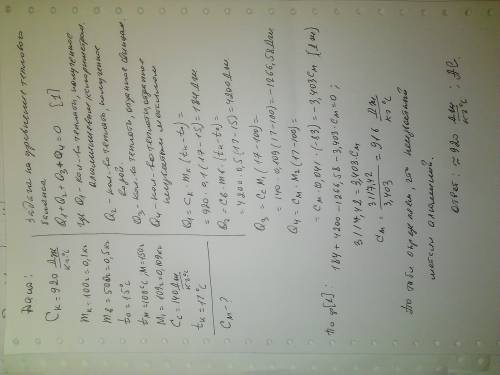 Дано:
Cк=920 Дж/кг·°C
mк=100г=0,1кг
mв=500г=0,5кг
t0=15°C
tм=100°C, M=150г
M1=109г=0,109кг
Cс=140 Дж/кг·°C
tк=17°C
Cм-?
Задача на уравнение теплового
баланса
Q1+Q2+Q3+Q4=0 [1]
где Q1 - кол-во теплоты, полученное
алюминиевым калориметром,
Q2 - кол-во теплоты, полученное
водой,
Q3 - кол-во теплоты, отданное свинцом,
Q4 - кол-во теплоты, отданное
неизвестным металлом
Q1=Cк mк (tк-t0)=
=920·0,1(17-15)=184Дж
Q2=Cв mв (tк-t0)=
=4200·0,5(17-15)=4200Дж
Q3=Cс M1(17-100)=
=140·0,109(17-100)=-1266,58Дж
Q4=Cм·M2(17-100)=
=Cм·0,041·(-83)=-3,403Cм [Дж]
По ф[1]:
184+4200-1266,58-3,403·Cм=0;
3117,42=3,403Cм
Cм=3117,42/3,403=916 Дж/кг·°C
По табл определяем, что неизвестный
металл алюминий.
Ответ: ≈920 Дж/кг·°C;